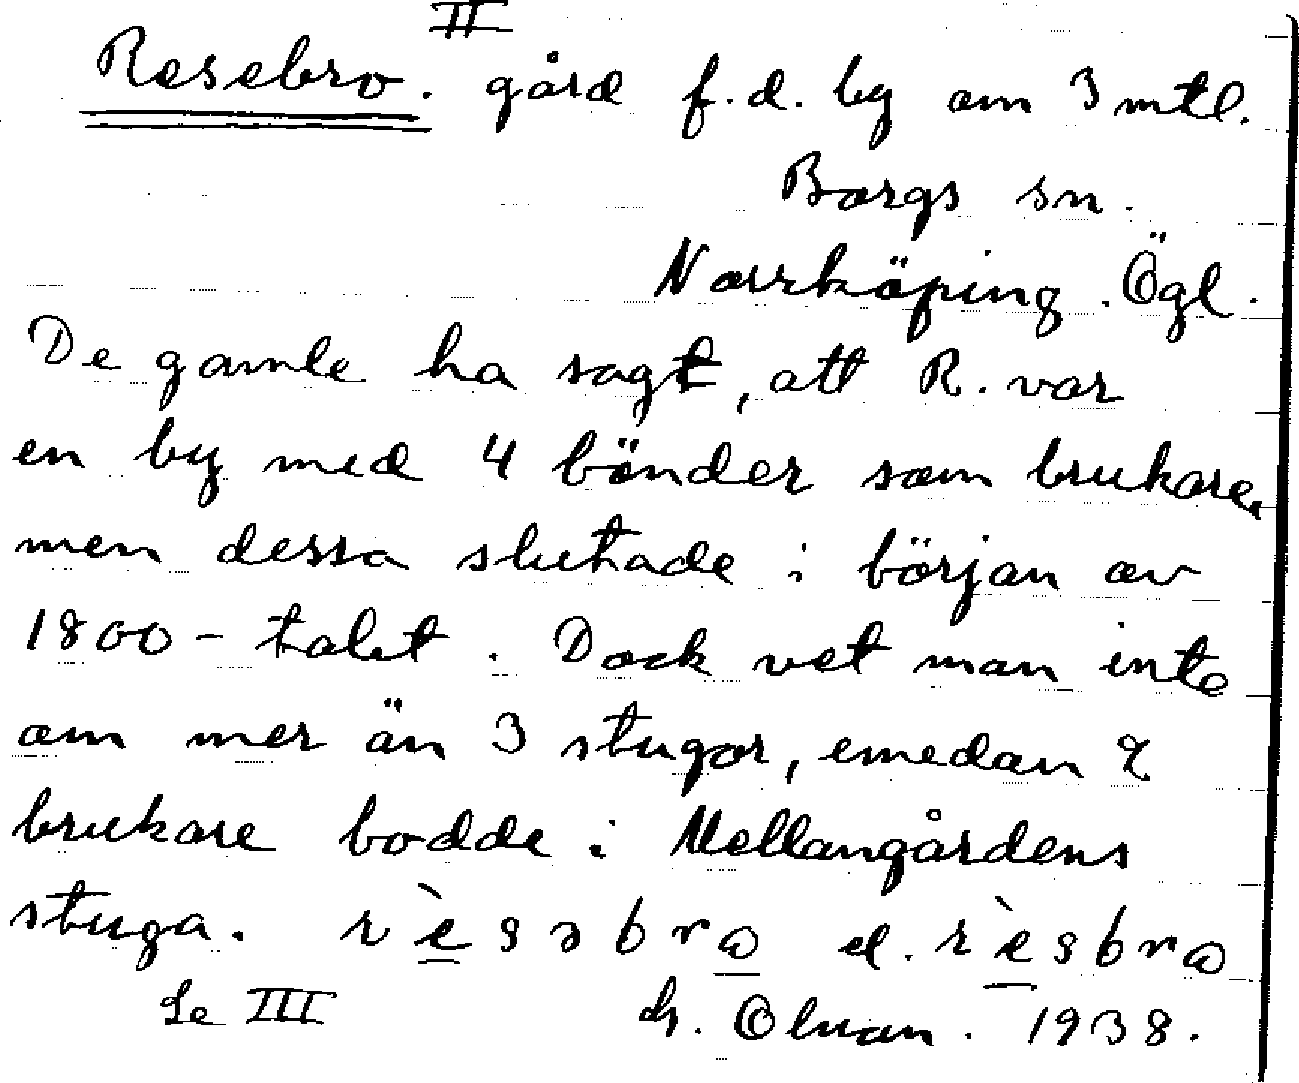 II
Resebro. gård f.d. by om 3 mtl.
Borgs sn.
Norrköping. Ögl.
De gamle ha sagt, att R. var
en by med 4 bönder som brukare,
men dessa slutade i början av
1800-talet. Dock vet man inte
om mer än 3 stugor, emedan 2
brukare bodde i Mellangårdens
stuga. rèsəbrω el. rèsbrω
Se III Olman. 1938.